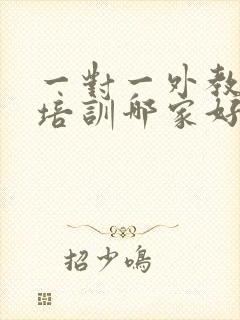 一對一外教
培訓哪家好
招少鳴